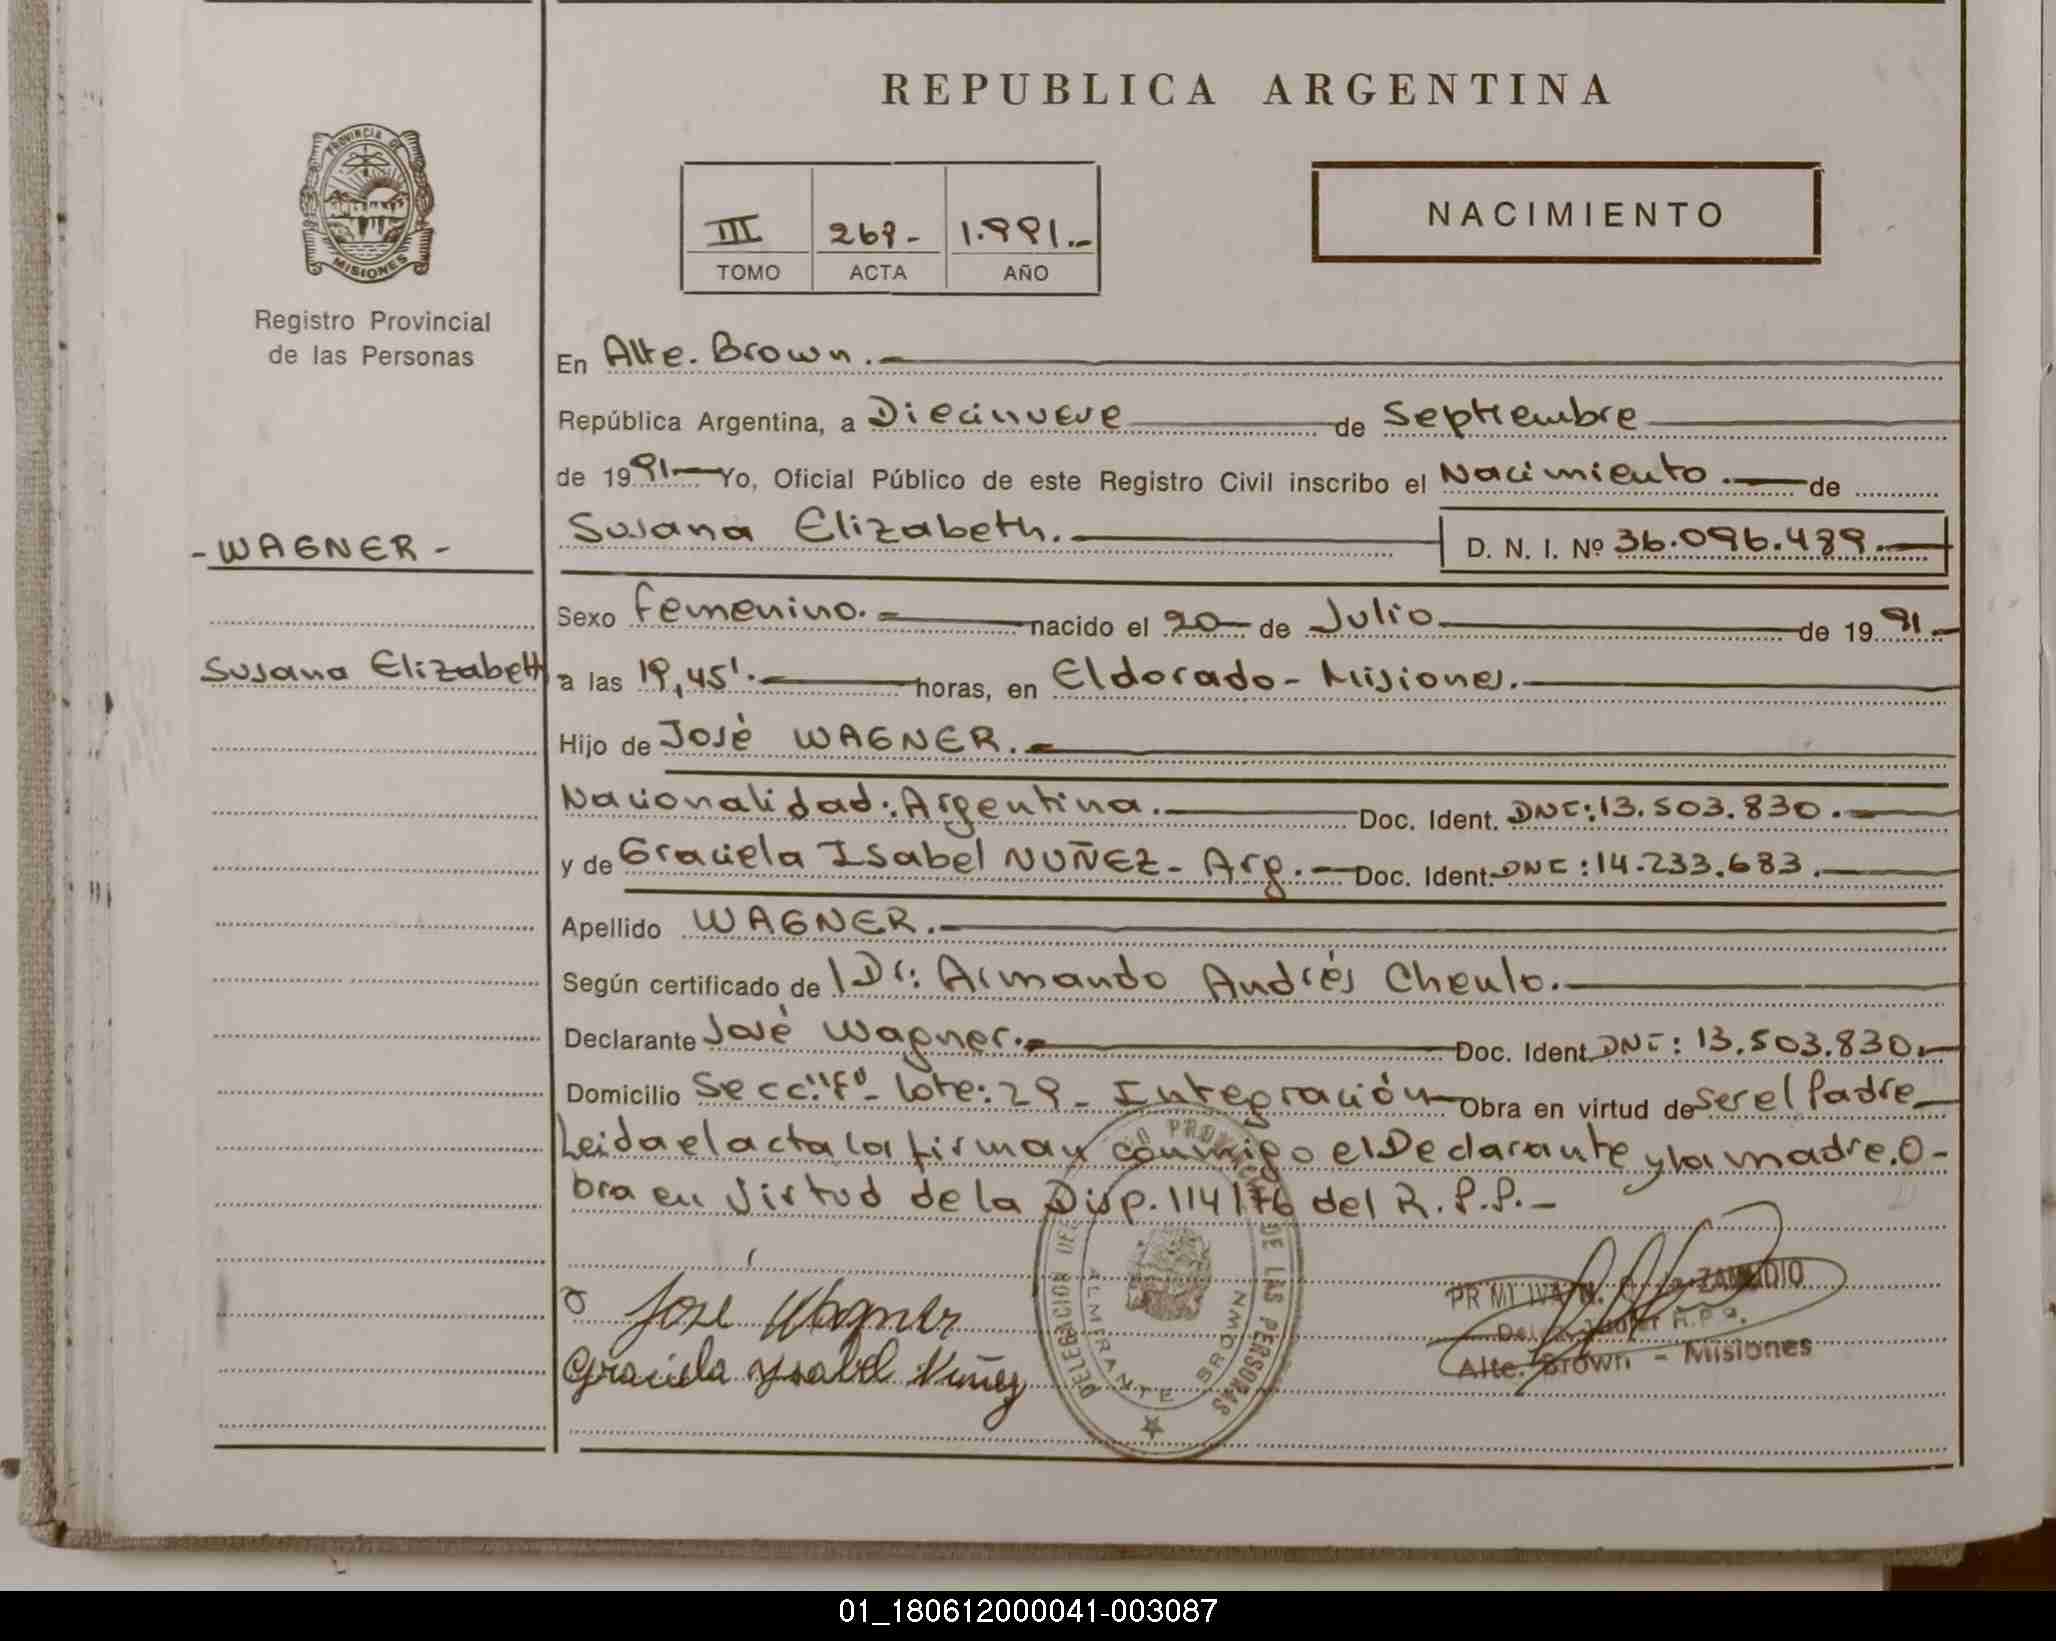 REPUBLICA ARGENTINA
PROVINCIA DE MISIONES
Registro Provincial
de las Personas
III 269- 1.991.-
TOMO ACTA AÑO
NACIMIENTO
En Alte. Brown.-
República Argentina, a Diecinueve de Septiembre
de 1991 Yo, Oficial Público de este Registro Civil inscribo el Nacimiento.- de
- WAGNER -
Susana Elizabeth.- D. N. I. Nº 36.096.489.-
Sexo femenino.- nacido el 20 de Julio de 1991.-
Susana Elizabeth
a las 19,45'.- horas, en Eldorado - Misiones.-
Hijo de José WAGNER.-
Nacionalidad: Argentina.- Doc. Ident. DNI: 13.503.830.-
y de Graciela Isabel NUÑEZ - Arg.- Doc. Ident. DNI: 14.233.683.-
Apellido WAGNER.-
Según certificado de Dr: Armando Andrés
Declarante José Wagner.- Doc. Ident. DNI: 13.503.830.-
Domicilio Secc: "F"- lote: 29 - Integración Obra en virtud de ser el Padre
Leida el acta la firman conmigo el Declarante y la madre. O-
bra en virtud de la Disp. 114/76 del R. P. P.-
José Wagner
Graciela Ysabel Nuñez
DELEGACION DEL REGISTRO PROVINCIAL DE LAS PERSONAS
ALMIRANTE BROWN
ZAMUDIO
R.P.P.
Alte. Brown - Misiones
01_180612000041-003087